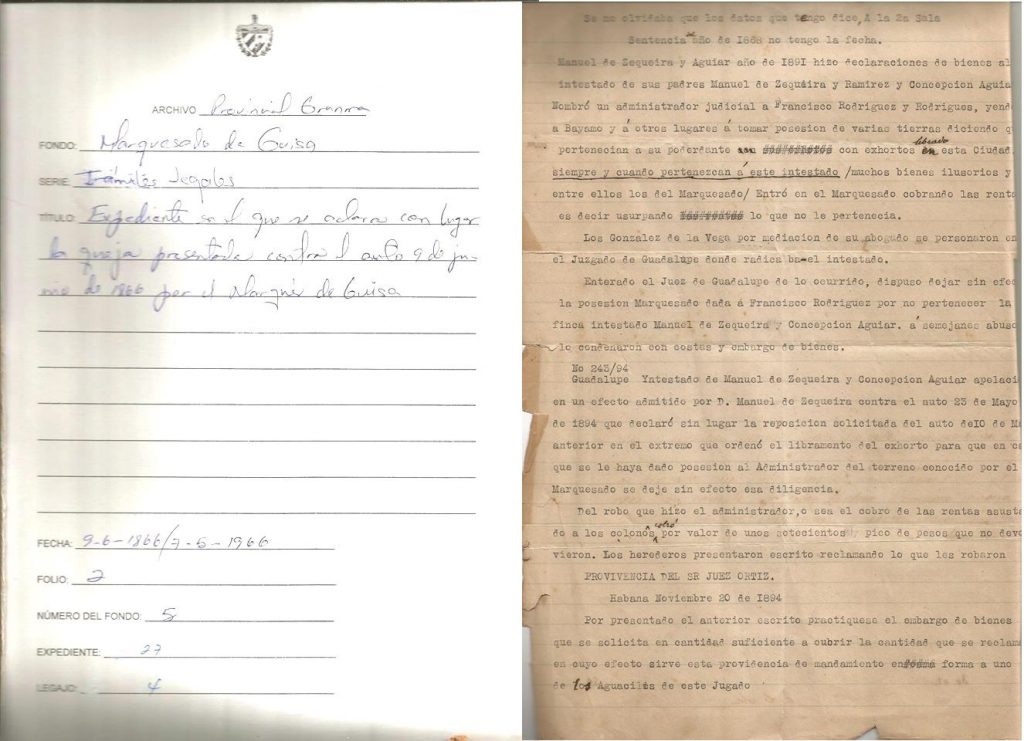 ARCHIVO Provincial Granma
FONDO: Marquesado de Guisa
SERIE: Trámites legales
TÍTULO: Expediente en el que se aclara con lugar
la queja presentada contra el auto 9 de ju-
nio de 1866 por el Marqués de Guisa
FECHA: 9-6-1866/7-5-1966
FOLIO: 2
NÚMERO DEL FONDO: 5
EXPEDIENTE: 27
LEGAJO: 4
Se me olvidaba que los datos que tengo dice, A la 2a Sala
Sentencia año de I868 no tengo la fecha.
Manuel de Zequeira y Aguiar año de I89I hizo declaraciones de bienes al
intestado de sus padres Manuel de Zequeira y Ramirez y Concepcion Aguia
Nombró un administrador judicial a Francisco Rodriguez y Rodrigues, yend
a Bayamo y á otros lugares á tomar posesion de varias tierras diciendo q
pertenecian a su poderdante con exhortos librado en esta Ciudad
siempre y cuando pertenezcan á este intestado /muchos bienes ilusorios y
entre ellos los del Marquesado/ Entró en el Marquesado cobrando las rent
es decir usurpando lo que no le pertenecia.
Los Gonzalez de la Vega por mediacion de su abogado se personaron en
el Juzgado de Guadalupe donde radica ba el intestado.
Enterado el Juez de Guadalupe de lo ocurrido, dispuso dejar sin efec
la posesion Marquesado dada á Francisco Rodriguez por no pertenecer la
finca intestado Manuel de Zequeira y Concepcion Aguiar. á semejanes abuso
lo condenaron con costas y embargo de bienes.
No 243/94
Guadalupe Yntestado de Manuel de Zequeira y Concepcion Aguiar apelaci
en un efecto admitido por D. Manuel de Zequeira contra el auto 23 de Mayo
de I894 que declaró sin lugar la reposicion solicitada del auto deI0 de M
anterior en el extremo que ordenó el libramento del exhorto para que en c
que se le haya dado posesion al Administrador del terreno conocido por el
Marquesado se deje sin efecto esa diligencia.
Del robo que hizo el administrador, o sea el cobro de las rentas asust
do a los colonos cobró por valor de unos setecientos y pico de pesos que no devo
vieron. Los herederos presentaron escrito reclamando lo que les robaron
PROVIVENCIA DEL SR JUEZ ORTIZ.
Habana Noviembre 20 de I894
Por presentado el anterior escrito practiquese el embargo de bienes
que se solicita en cantidad suficiente a cubrir la cantidad que se reclam
en cuyo efecto sirve esta providencia de mandamiento en forma a uno
de los Aguaciles de este Jugado